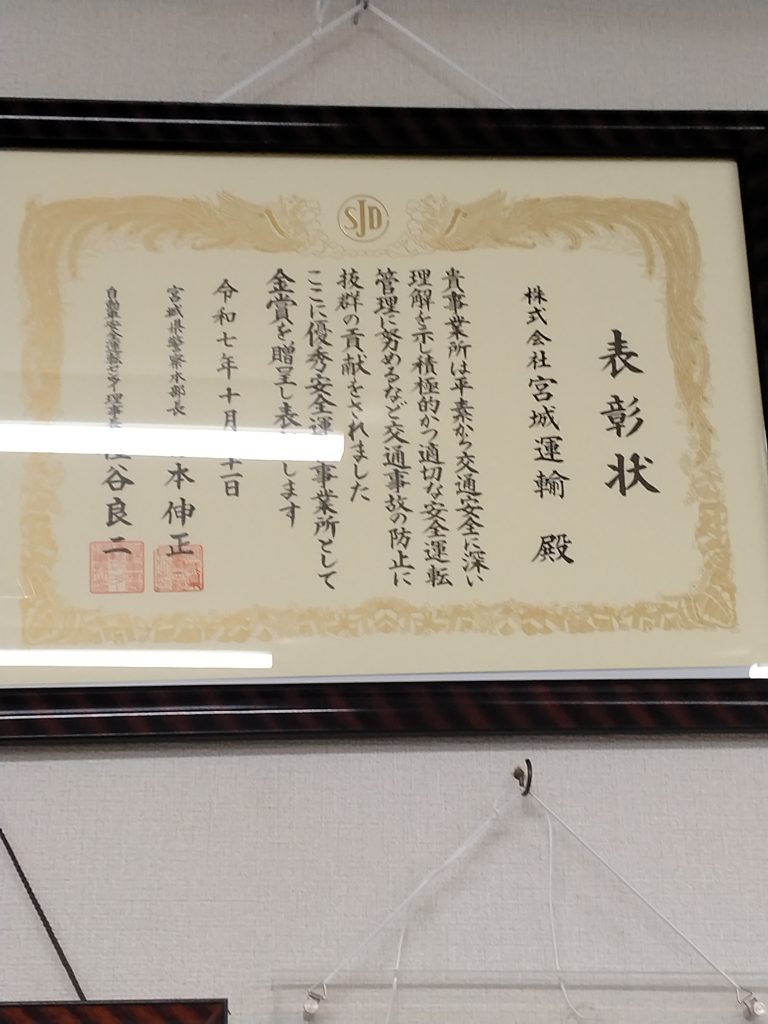 SJD
表彰状
株式会社宮城運輸 殿
貴事業所は平素から交通安全に深い
理解を示し積極的かつ適切な安全運転
管理に努めるなど交通事故の防止に
抜群の貢献をされました
ここに優秀安全運 事業所として
金賞を贈呈し表 します
令和七年十月 十一日
宮城県警察本部長 本伸正
自動車安全運転センター理事長 谷良二